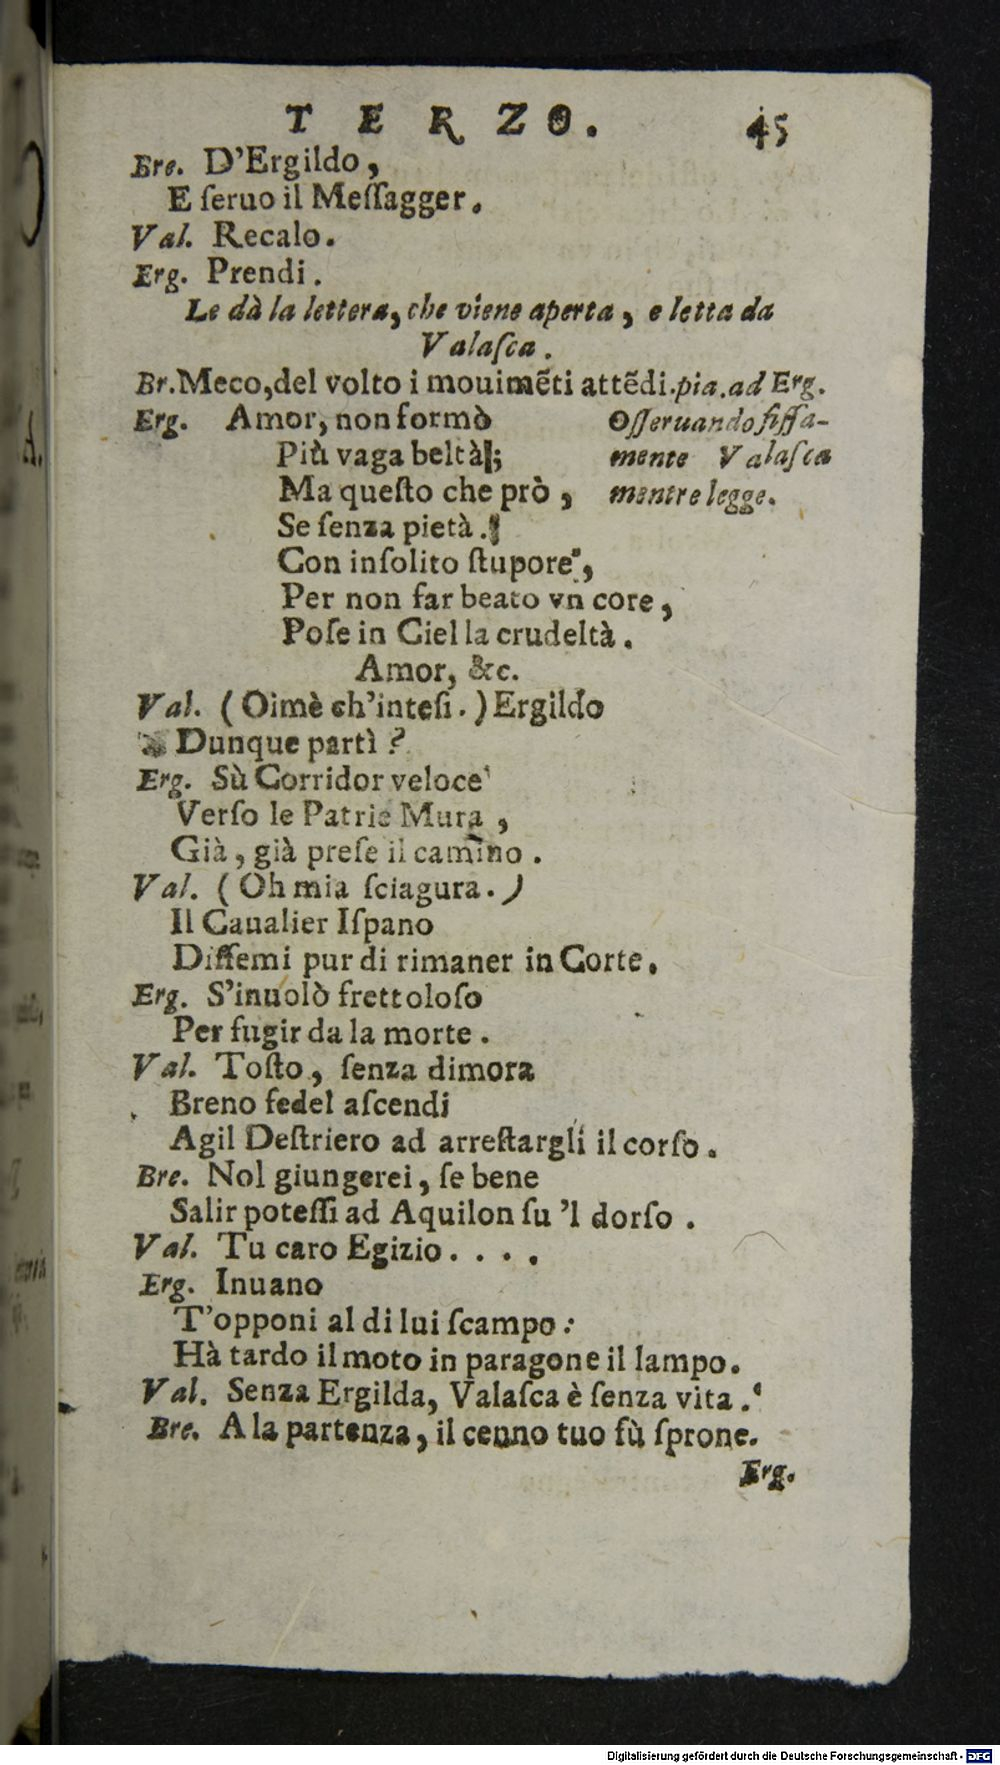 TERZO. 45
Bre. D'Ergildo,
E ſeruo il Meſſagger.
Val. Recalo.
Erg. Prendi.
Le dà la lettera, che viene aperta, e letta da
Valaſca.
Br. Meco, del volto i mouimẽti attẽdi. pia. ad Erg.
Erg. Amor, non formò Oſſeruando fiſſa-
Più vaga beltà; mente Valaſca
Ma queſto che prò, mentre legge.
Se ſenza pietà.
Con inſolito ſtupore,
Per non far beato vn core,
Poſe in Ciel la crudeltà.
Amor, &c.
Val. (Oimè ch'inteſi.) Ergildo
Dunque partì?
Erg. Sù Corridor veloce
Verſo le Patrie Mura,
Già, già preſe il camino.
Val. (Oh mia ſciagura.)
Il Caualier Iſpano
Diſſemi pur di rimaner in Corte.
Erg. S'inuolò frettoloſo
Per fugir da la morte.
Val. Toſto, ſenza dimora
Breno fedel aſcendi
Agil Deſtriero ad arreſtargli il corſo.
Bre. Nol giungerei, ſe bene
Salir poteſſi ad Aquilon ſu 'l dorſo.
Val. Tu caro Egizio....
Erg. Inuano
T'opponi al di lui ſcampo:
Hà tardo il moto in paragone il lampo.
Val. Senza Ergilda, Valaſca è ſenza vita.
Bre. A la partenza, il cenno tuo fù ſprone.
Erg.
Digitalisierung gefördert durch die Deutsche Forschungsgemeinschaft - DFG